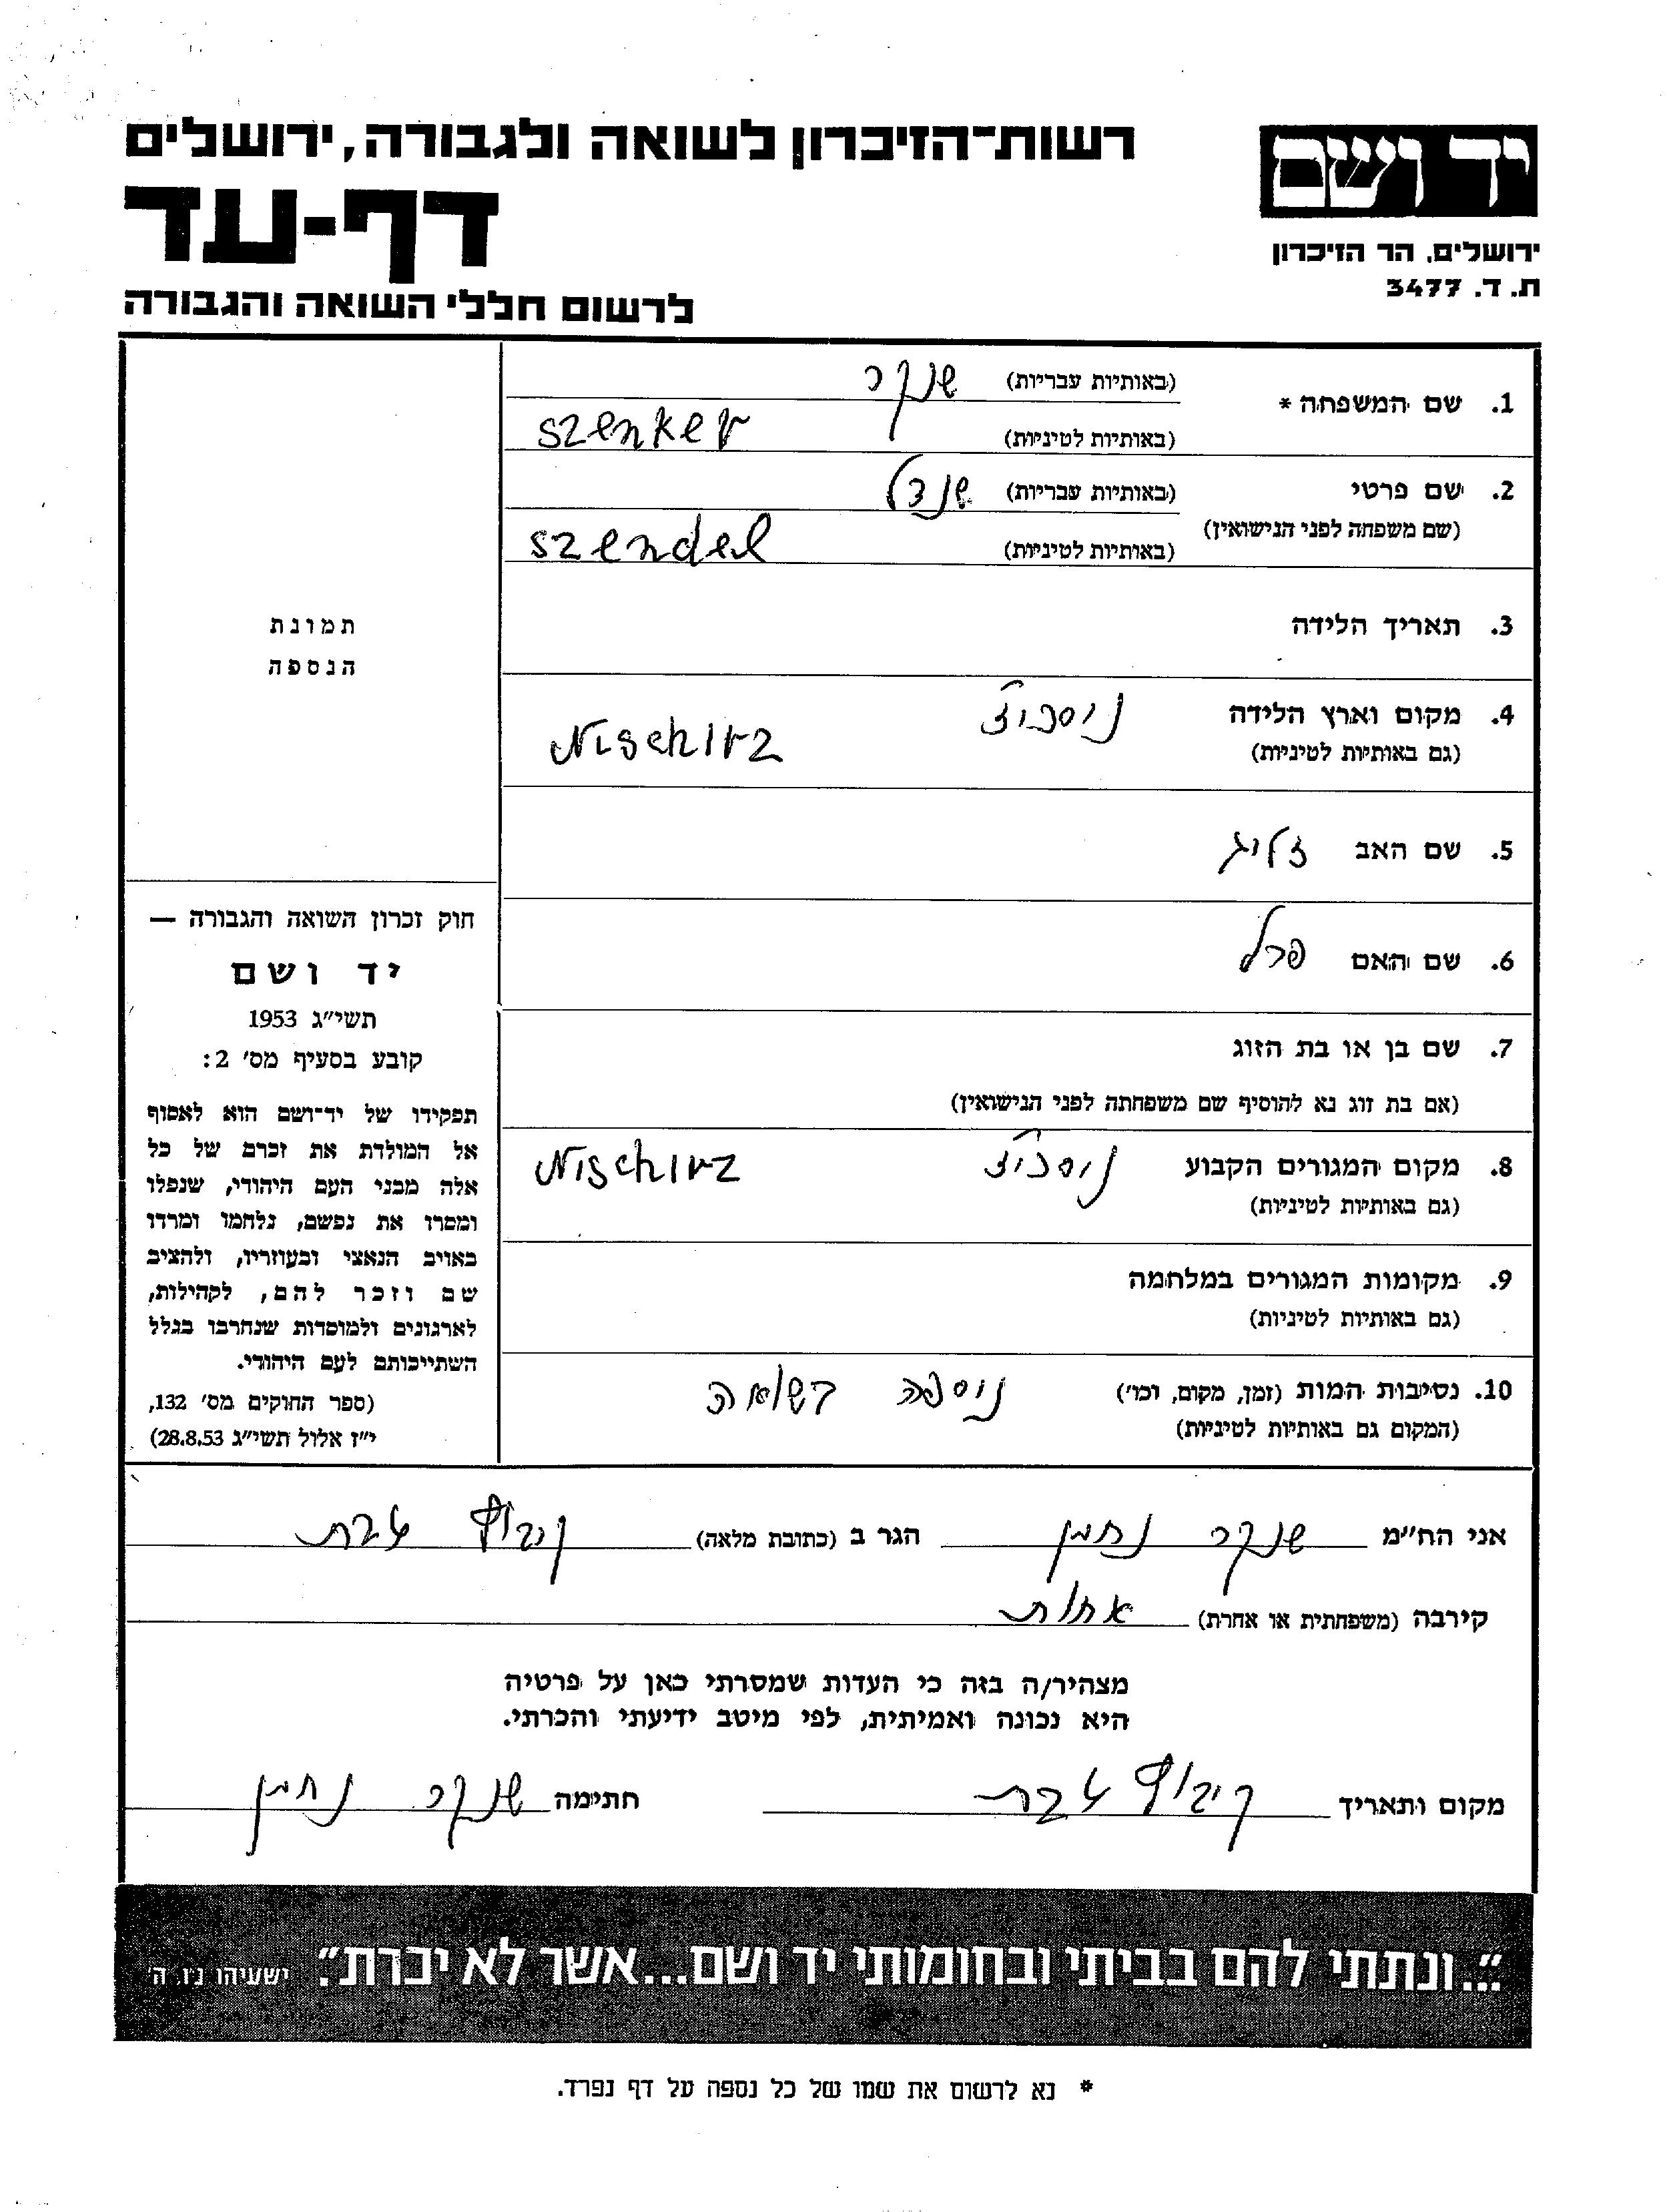 רשות־הזיכרון לשואה ולגבורה, ירושלים
יד ושם
דף-עד
ירושלים, הר הזיכרון
ת. ד. 3477
לרשום חללי השואה והגבורה
1. שם המשפחה * (באותיות עבריות) שנקר
(באותיות לטיניות) szenker
2. שם פרטי (באותיות עבריות) שנדל
(שם משפחה לפני הנישואין) (באותיות לטיניות) szendel
3. תאריך הלידה
תמונת
הנספה
4. מקום וארץ הלידה נוסכויצ Nischirz
(גם באותיות לטיניות)
5. שם האב זליג
6. שם האם פרל
7. שם בן או בת הזוג
(אם בת זוג נא להוסיף שם משפחתה לפני הנישואין)
8. מקום המגורים הקבוע Nischirz
(גם באותיות לטיניות)
9. מקומות המגורים במלחמה
(גם באותיות לטיניות)
10. נסיבות המות (זמן, מקום, וכו') נוספה בשואה
(המקום גם באותיות לטיניות)
חוק זכרון השואה והגבורה —
יד ושם
תשי״ג 1953
קובע בסעיף מס' 2:
תפקידו של יד־ושם הוא לאסוף
אל המולדת את זכרם של כל
אלה מבני העם היהודי, שנפלו
ומסרו את נפשם, נלחמו ומרדו
באויב הנאצי ובעוזריו, ולהציב
שם וזכר להם, לקהילות,
לארגונים ולמוסדות שנחרבו בגלל
השתייכותם לעם היהודי.
(ספר החוקים מס' 132,
י״ז אלול תשי״ג 28.8.53)
אני הח״מ שנקר נחמן הגר ב (כתובת מלאה)
קירבה (משפחתית או אחרת) אחות
מצהיר/ה בזה כי העדות שמסרתי כאן על פרטיה
היא נכונה ואמיתית, לפי מיטב ידיעתי והכרתי.
מקום ותאריך חתימה שנקר נחמן
״...ונתתי להם בביתי ובחומותי יד ושם...אשר לא יכרת״. ישעיהו נ״ו, ה'
* נא לרשום את שמו של כל נספה על דף נפרד.